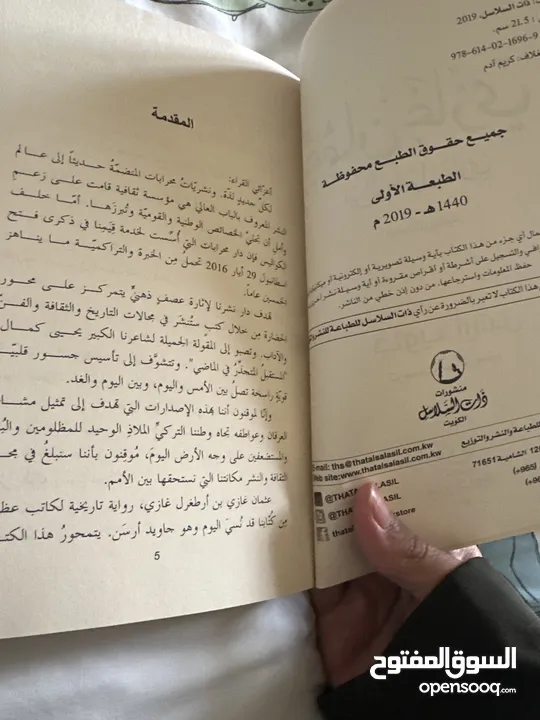 ذات السلاسل، 2019.
21.5 سم.
978-614-02-1696-9
كريم آدم
جميع حقوق الطبع محفوظة
الطبعة الأولى
1440 هـ - 2019 م
أي جزء من هذا الكتاب بأية وسيلة تصويرية أو إلكترونية أو
والتسجيل على أشرطة أو أقراص مقروءة أو أية وسيلة نشر
حفظ المعلومات واسترجاعها، من دون إذن خطي من الناشر.
هذا الكتاب لا تعبر بالضرورة عن رأي ذات السلاسل للطباعة والنشر
منشورات
ذات السلاسل
الكويت
للطباعة والنشر والتوزيع
الشامية 71651
(965+)
E-mail: ths@thatalsalasil.com.kw
site:www.thatalsalasil.com.kw
@THATALSALASIL
@THAT
LASIL
store
المقدمة
أعزائي القراء:
لكل جديدٍ لذة. ونشريّات محرابات المنضمّة حديثاً إلى عالم
النشر المعروف بالباب العالي هي مؤسسة ثقافية قامت على زعمٍ
وأملٍ أن تحلّي الخصائص الوطنية والقوميّة وتُبرزها. أمّا خلف
الكواليس فإن دار محرابات التي أُسّست لخدمة قيمنا في ذكرى فتح
اسطانبول 29 أيار 2016 تحمل من الخبرة والتراكمية ما يناهز
الخمسين عاماً.
تهدف دار نشرنا لإثارة عصفٍ ذهنيٍّ يتمركز على محور
الحضارة من خلال كتب ستُنشر في مجالات التاريخ والثقافة والفنّ
والآداب. وتصبو إلى المقولة الجميلة لشاعرنا الكبير يحيى كمال
"المستقبل المتجذّر في الماضي". وتتشوّف إلى تأسيس جسور قلبيّة
قويّةٍ راسخة تصل بين الأمس واليوم، وبين اليوم والغد.
وإنّا لموقنون أننا بهذه الإصدارات التي تهدف إلى تمثيل
العرفان وعواطفه تجاه وطننا التركيّ الملاذ الوحيد للمظلومين
والمستضعفين على وجه الأرض اليوم، مُوقنون بأننا سنبلغ في
الثقافة والنشر مكانتنا التي نستحقها بين الأمم.
عثمان غازي بن أرطغرل غازي، رواية تاريخية لكاتب
من كُتّابنا قد نُسيَ اليوم وهو جاويد أرسَن. يتمحورُ هذا
5
السوق المفتوح
opensooq.com